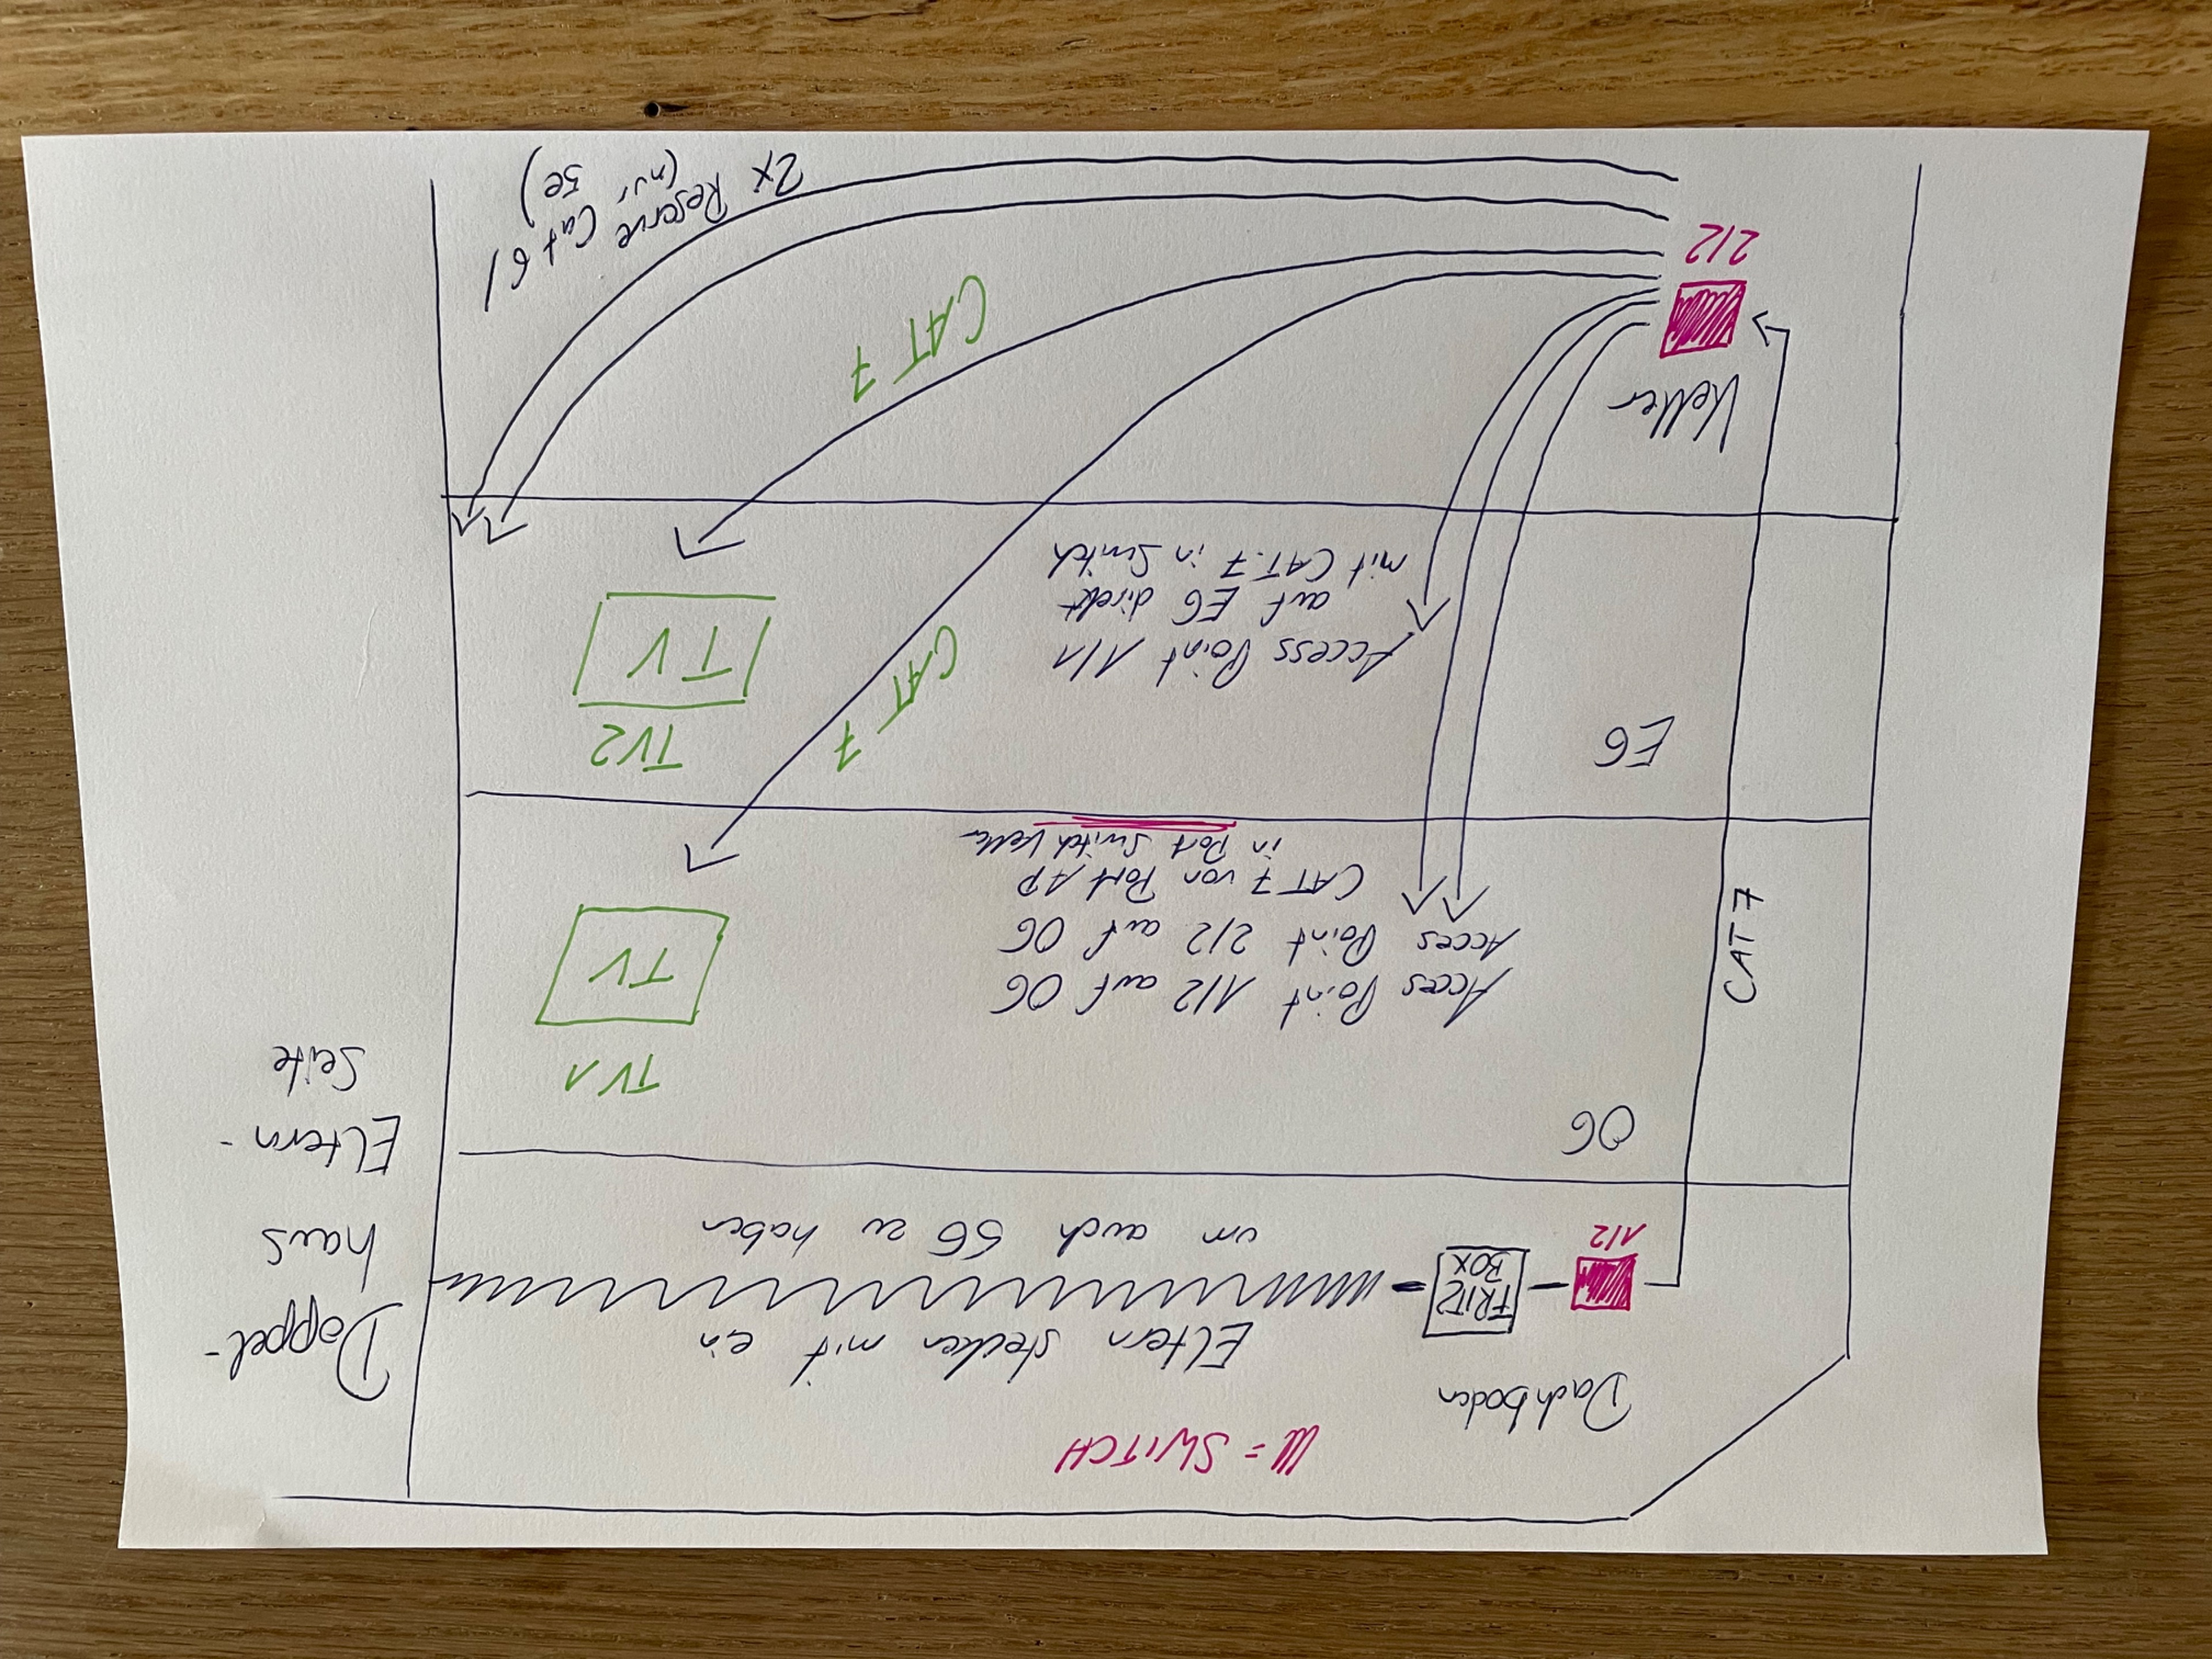 ▨ = SWITCH
Dachboden
Eltern stecken mit ein
FRITZ
BOX
1/2
um auch 5G zu haben
Doppel-
haus
Eltern-
Seite
OG
CAT7
TV1
TV
Acces Point 1/2 auf OG
Acces Point 2/2 auf OG
CAT 7 von Port AP
in Port Switch Keller
CAT 7
EG
TV2
TV
Access Point 1/1
auf EG direkt
mit CAT.7 in Switch
CAT 7
Keller
2/2
2x Reserve Cat 6/
(nur 5e)